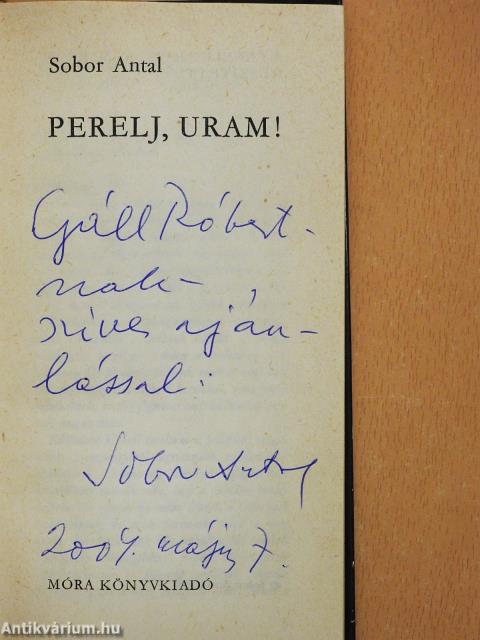 Sobor Antal
PERELJ, URAM!
Gáll Róbert-
nak-
szíves aján-
lással:
Sobor Antal
2004. május 7.
MÓRA KÖNYVKIADÓ
Antikvárium.hu